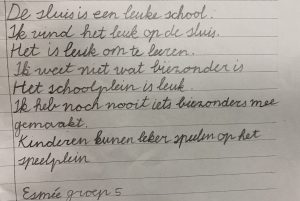 De sluis is een leuke school.
Ik vind het leuk op de sluis.
Het is leuk om te leeren.
Ik weet niet wat biezonder is
Het schoolplein is leuk.
Ik heb noch nooit iets biezonders mee
gemaakt.
Kinderen kunen leker spelen op het
speelplein
Esmée groep 5